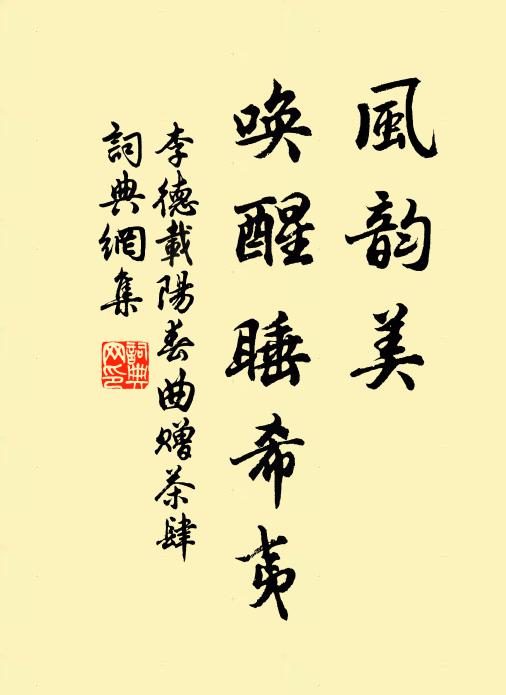 風韵美
唤醒睡希夷
李德載陽春曲贈茶肆
詞典網集
詞典網印